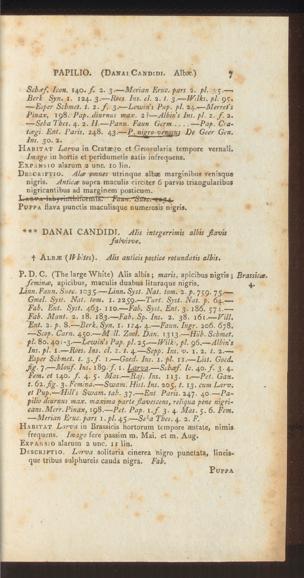 PAPILIO. (DANAI CANDIDI. Albæ.) 7
Schæf. Icon. 140. f. 2. 3.—Merian Eruc. pars 2. pl. 35.—
Berk Syn. 1. 124. 3.—Roes. Ins. cl. 2. t. 3.—Wilks. pl. 95.
—Esper Schmet. t. 2. f. 3.—Lewin's Pap. pl. 24.—Merret's
Pinax, 198. Pap. diurnus max. 2!—Albin's Ins. pl. 2. f. 2.
—Seba Thes. 4. 2. H.—Panz. Faun Germ.
tægi. Ent. Paris. 248. 43.—P. nigro-venosus De Geer Gen.
Int. 30. 2.
HABITAT Larva in Cratægo et Grossularia tempore vernali.
Imago in hortis et peridometis satis infrequens.
EXPANSIO alarum 2 unc. 10 lin.
DESCRIPTIO. Alæ omnes utrinque albæ marginibus venisque
nigris. Anticæ supra maculis circiter 6 parvis triangularibus
nigricantibus ad marginem posticum.
Larva labyrinthiformis. Faun. Suec. 1034.
PUPPA flava punctis maculisque numerosis nigris.
*** DANAI CANDIDI. Alis integerrimis albis flavis
fulvisve.
† ALBÆ (Whites). Alis anticis postice rotundatis albis.
P. D. C. (The large White) Alis albis; maris, apicibus nigris; Brassicæ.
feminæ, apicibus, maculis duabus lituraque nigris. 4.
Linn. Faun. Suec. 1035.—Linn. Syst. Nat. tom. 2. p. 759. 75.—
Gmel. Syst. Nat. tom. 1. 2259.—Turt. Syst. Nat. p. 64.—
Fab. Ent. Syst. 463. 110.—Fab. Syst. Ent. 3. 186. 571.—
Fab. Mant. 2. 18. 183.—Fab. Sp. Ins. 2. 38. 161.—Vill.
Ent. 2. p. 8.—Berk. Syn. 1. 124. 2.—Faun. Ingr. 206. 678.
—Scop. Carn. 450.—Müll. Zool. Dan. 1313.—Hib. Schmet.
pl. 80. 401-3.—Lewin's Pap. pl. 25.—Wilk, pl. 96.—Albin's
Ins. pl. 1.—Roes. Ins. cl. 2. t. 4.—Sepp. Ins. v. 1. 2. t. 2.—
Esper Schmet. t. 3. f. 1.—Goed. Ins. 1. pl. 11.—List. Goed.
fig. 7.—Mouf. Ins. 189. f. 1. Larva.—Schæf. Ic. 40. f. 3. 4.
Fem. et 140. f. 4. 5. Mas.—Raj. Ins. 113. 1.—Pet. Gaz.
t. 62. fig. 3. Femina.—Swam. Hist. Ins. 205. t. 13. cum Larv.
et Pup.—Hill's Swam. tab. 37.—Ent. Paris. 247. 40.—Pa-
pilio diurnus max. maxima parte flavescens, reliqua pene nigri-
cans. Merr. Pinax, 198.—Pet. Pap. 1. f. 3. 4. Mas. 5. 6. Fem.
—Merian Eruc. pars 1. pl. 45.—Seba Thes. 4. 2. F.
HABITAT Larva in Brassicis hortorum tempore æstate, nimis
frequens. Imago fere passim m. Mai. et m. Aug.
EXPANSIO alarum 2 unc. 11 lin.
DESCRIPTIO. Larva solitaria cinerea nigro punctata, lineis-
que tribus sulphureis cauda nigra. Fab.
PUPPA